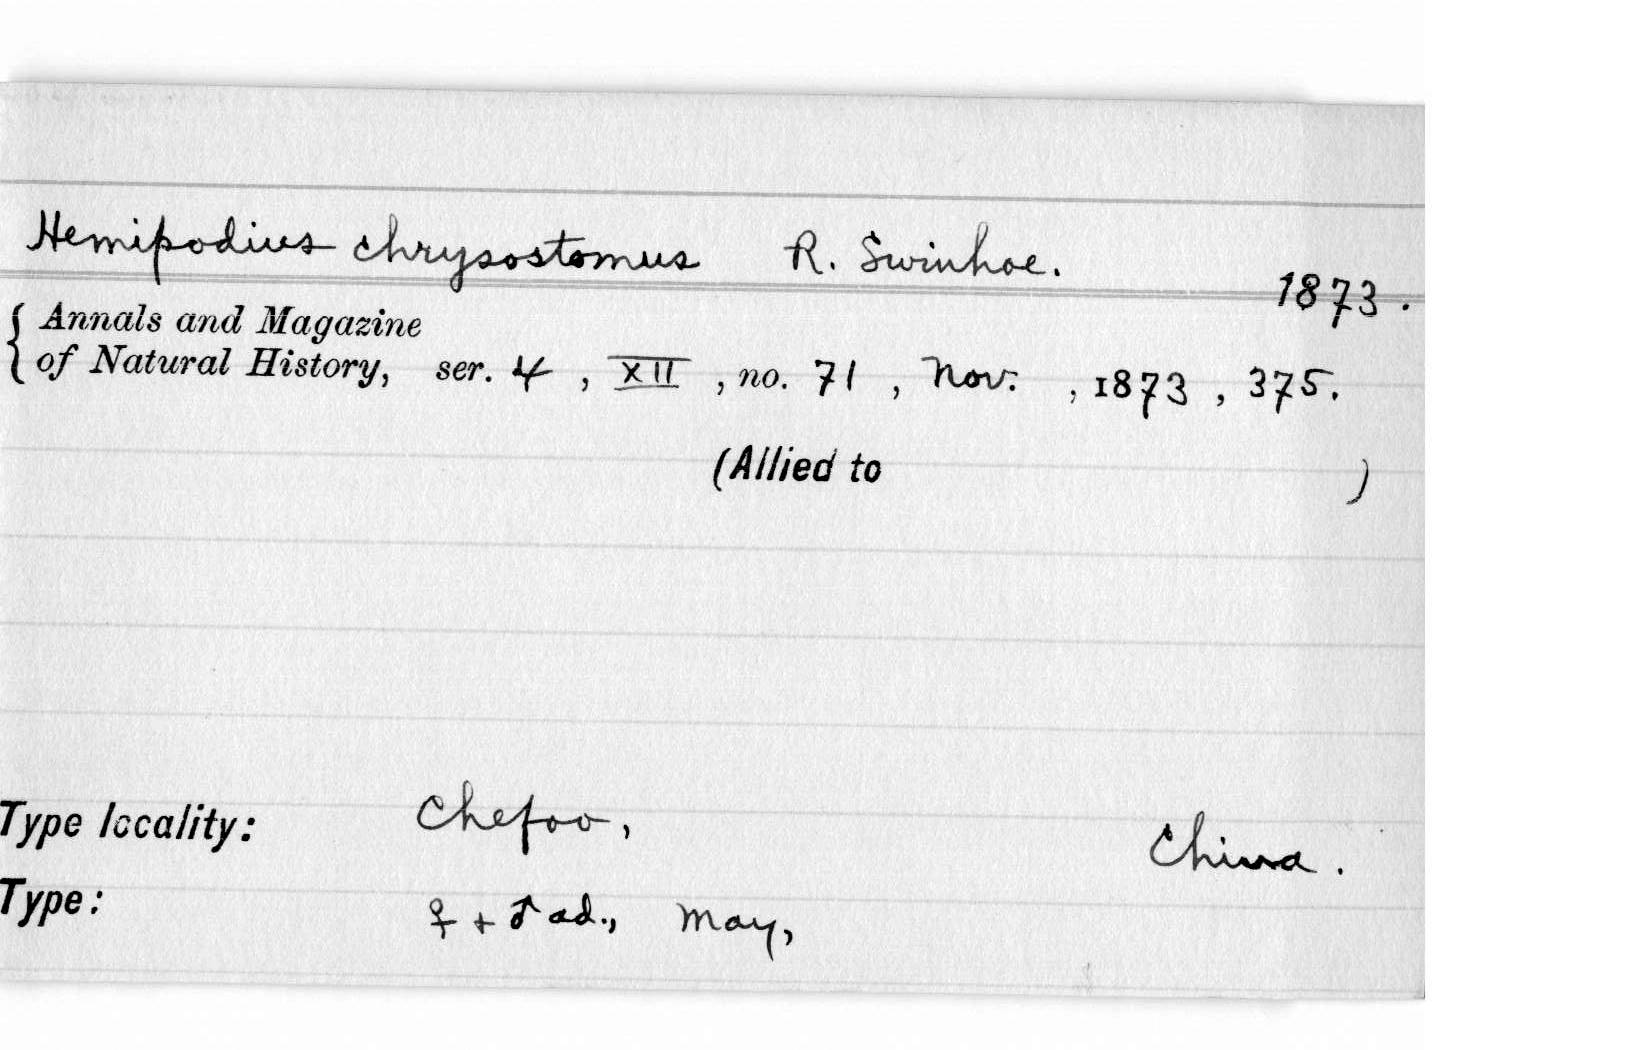 Hemipodius chrysostomus R. Swinhoe.
1873.
{ Annals and Magazine
of Natural History, ser. 4, XII, no. 71, Nov., 1873, 375.
(Allied to )
Type locality: Chefoo, China.
Type: ♀ + ♂ ad., May,